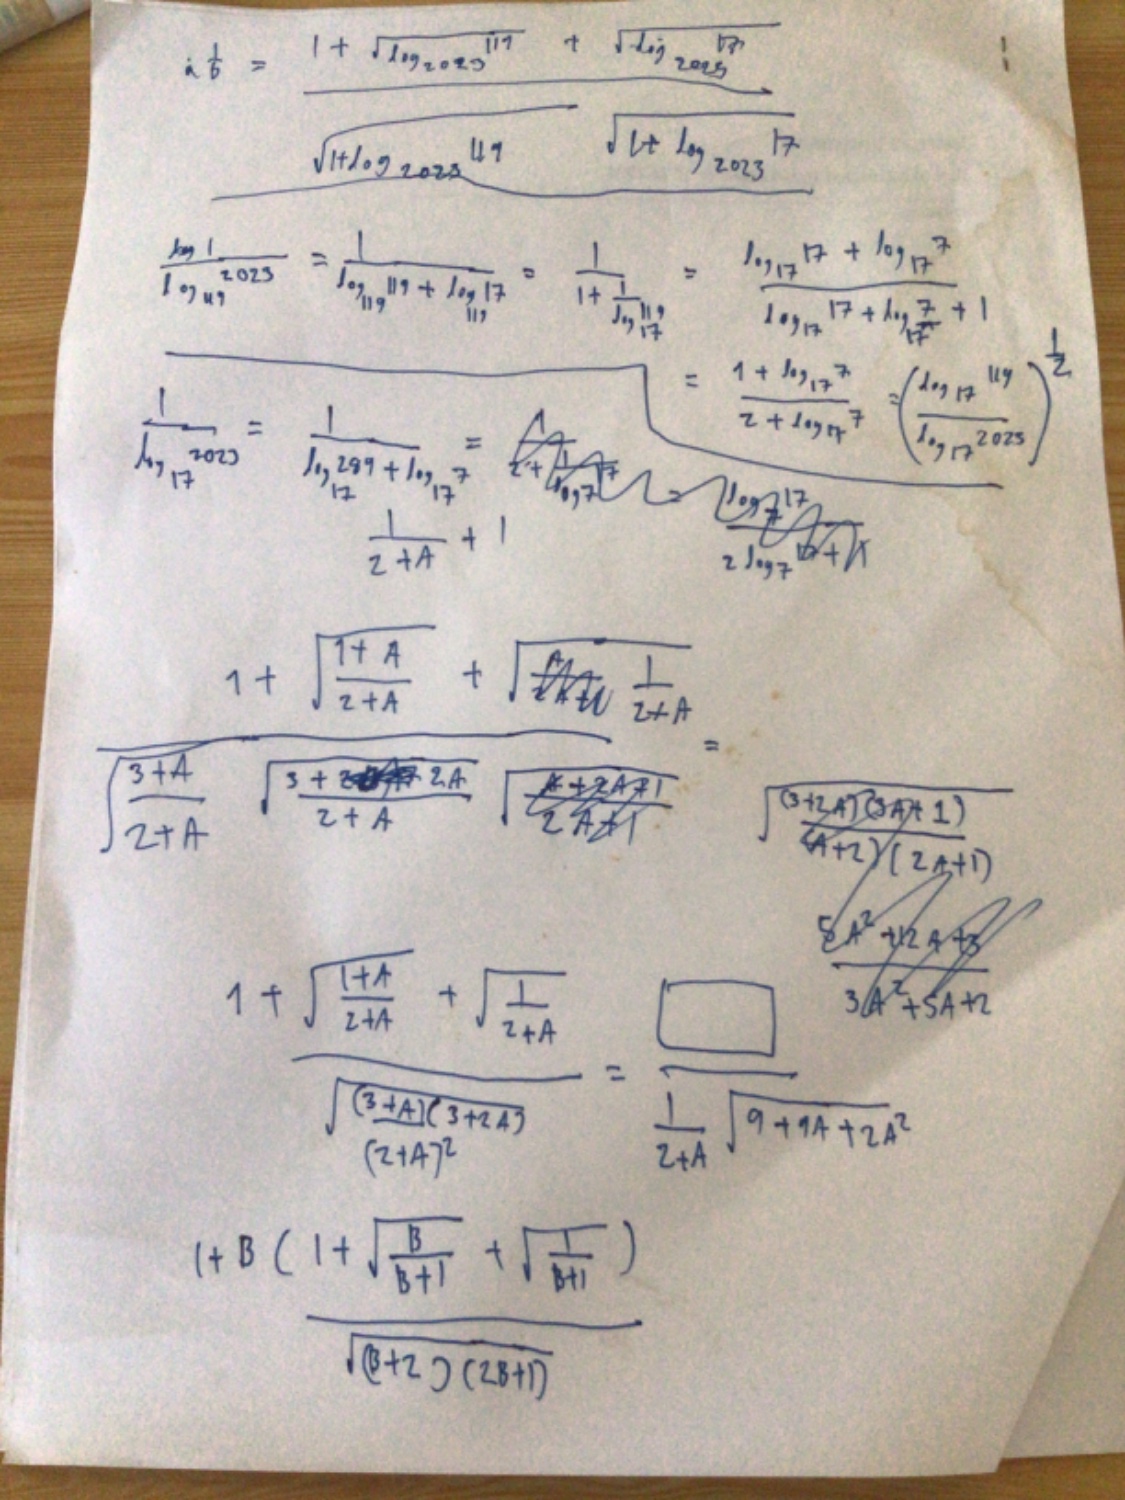 1 + √log₂₀₂₃ 119 + √log₂₀₂₃ 17
√1+log₂₀₂₃ 119 √1+ log₂₀₂₃ 17
1/log₁₁₉ 2023 = 1/(log₁₁₉ 119 + log₁₁₉ 17) = 1/(1 + 1/log₁₇ 119) = (log₁₇ 17 + log₁₇ 7)/(log₁₇ 17 + log₁₇ 7 + 1)
= (1 + log₁₇ 7)/(2 + log₁₇ 7) = (log₁₇ 119/log₁₇ 2023)^(1/2)
1/log₁₇ 2023 = 1/(log₁₇ 289 + log₁₇ 7) =
1/(2+A) + 1
1 + √((1+A)/(2+A)) + √(1/(2+A))
√((3+A)/(2+A)) √((3+2A)/(2+A)) =
√((3+2A)(3A+1)/((A+2)(2A+1)))
3A²+5A+2
1 + √((1+A)/(2+A)) + √(1/(2+A)) =
√((3+A)(3+2A)/(2+A)²)
1/(2+A) √(9+9A+2A²)
1+B (1+ √(B/(B+1)) + √(1/(B+1)))
√((B+2)(2B+1))